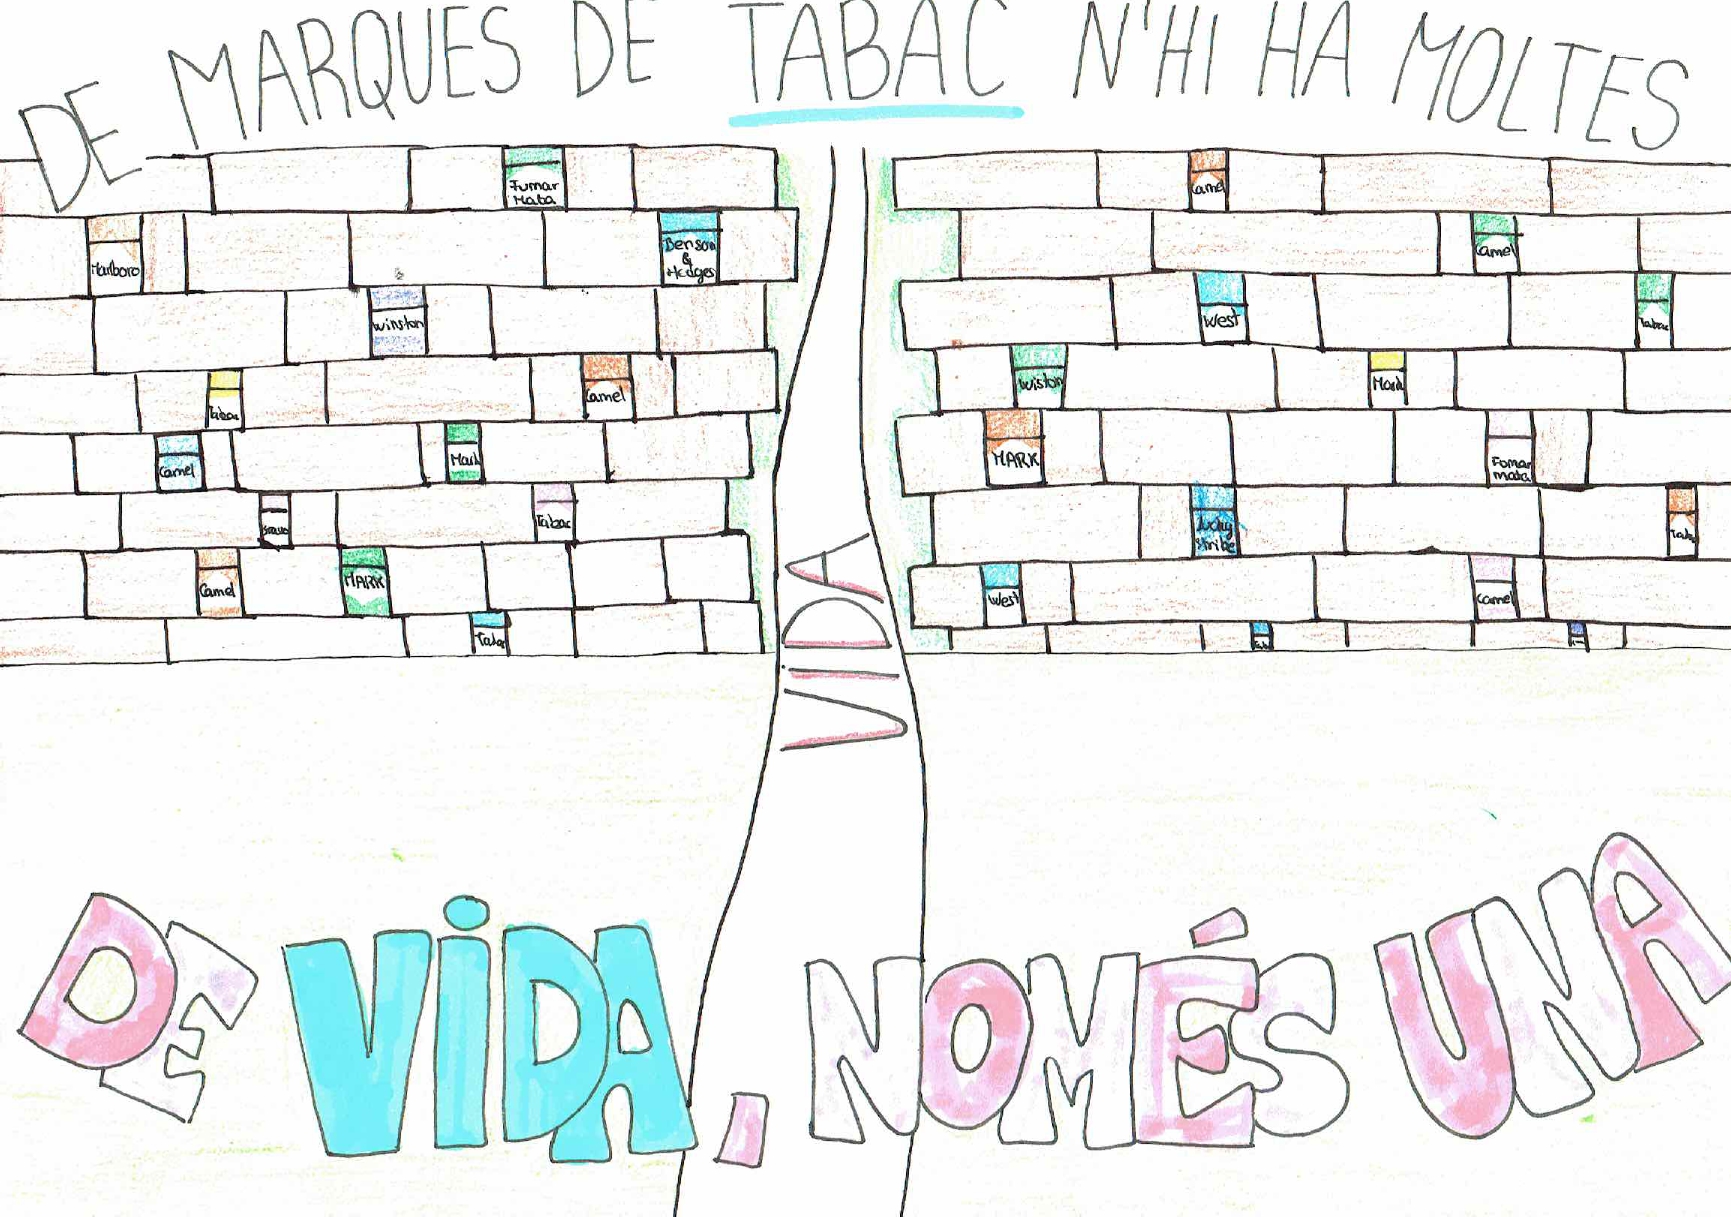 DE MARQUES DE TABAC N'HI HA MOLTES
Fumar
Mata
Camel
Marlboro
Benson
&
Hedges
Camel
Winston
West
Tabac
Tabac
Camel
Wiston
Mark
Camel
Mark
MARK
Fomar
mata
Tabac
Lucky
Stribe
Camel
MARK
West
Camel
Tabac
VIDA
DE ViDA, NOMÉS UNA